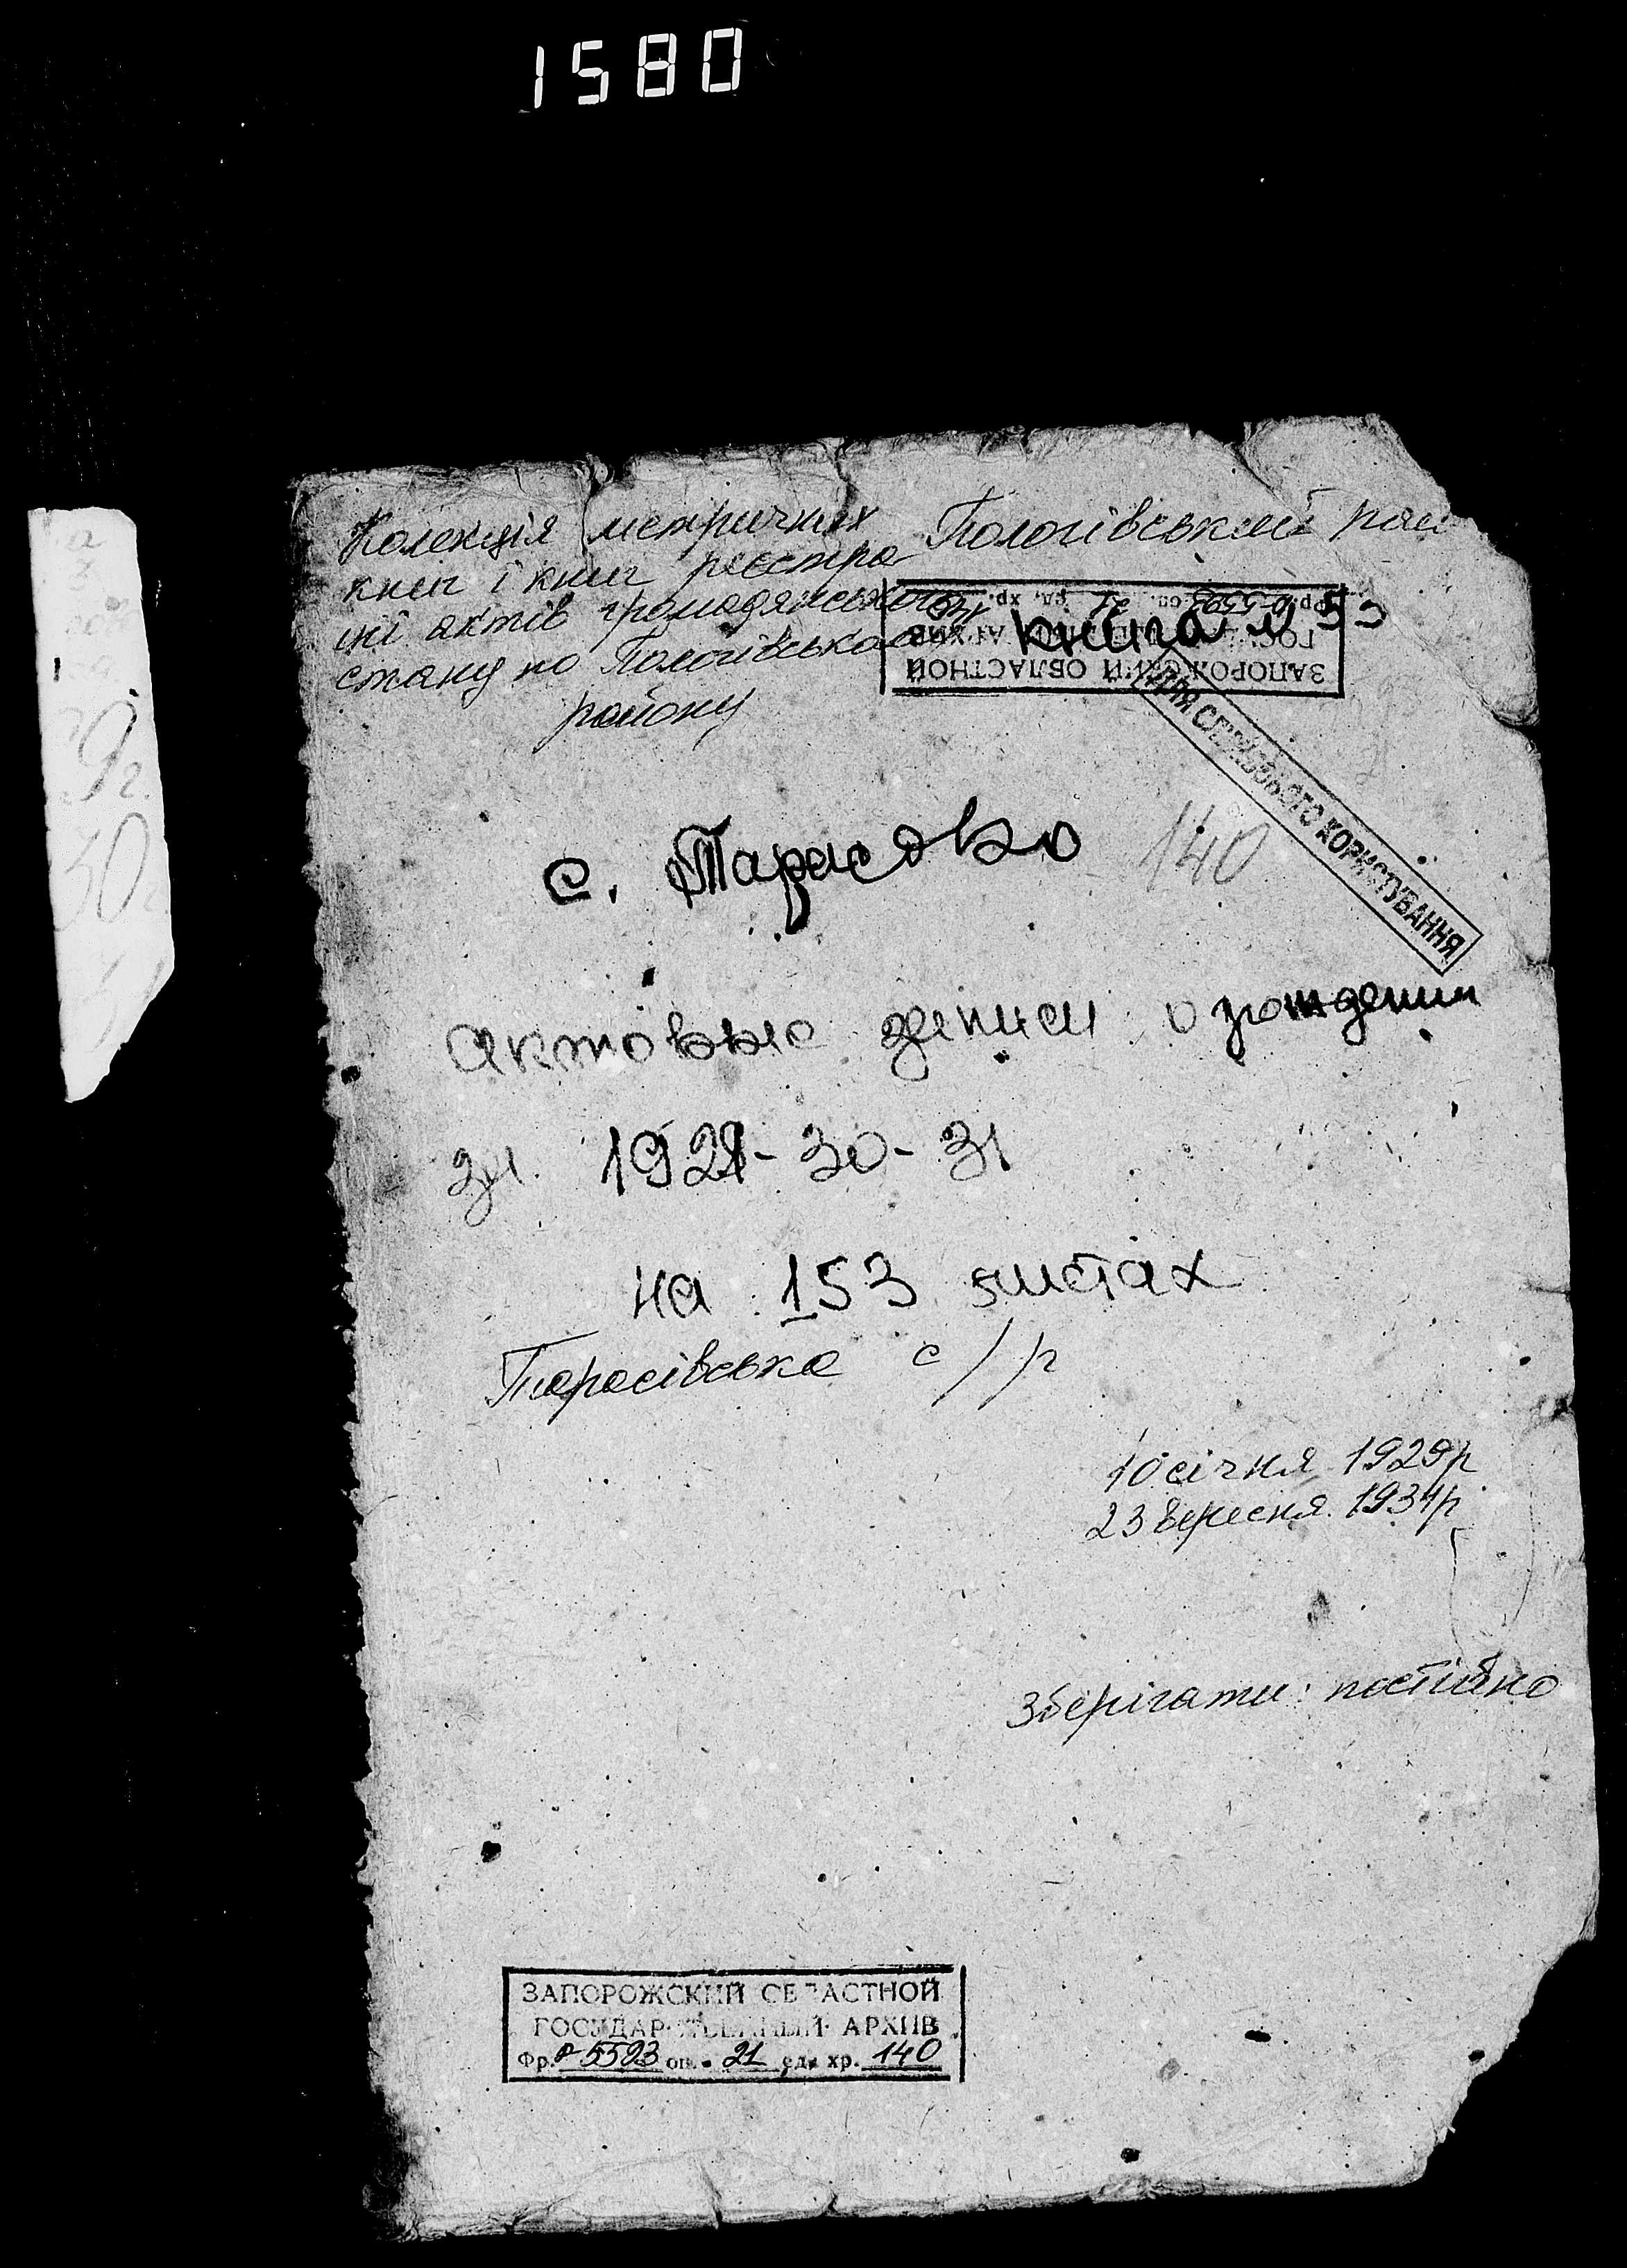 1580
Колекція метричних
книг і книг реєстра
ції актів громадянського
стану по Пологівському
району
Пологівський рай
книга
ЗАПОРОЖСКИЙ ОБЛАСТНОЙ
Р-5593 оп. 21 ед. хр. 140
ДЛЯ СЛУЖБОВОГО КОРИСТУВАННЯ
с. Тарасовка
140
актовые записи о рождении
за 1929-30-31
на 153 листах
Тарасівська с/р
10 січня 1929р
23 вересня 1931р
Зберігати: постійно
ЗАПОРОЖСКИЙ ОБЛАСТНОЙ
ГОСУДАРСТВЕННЫЙ АРХИВ
Фр. Р-5593 оп. 21 ед. хр. 140
9г.
30г.